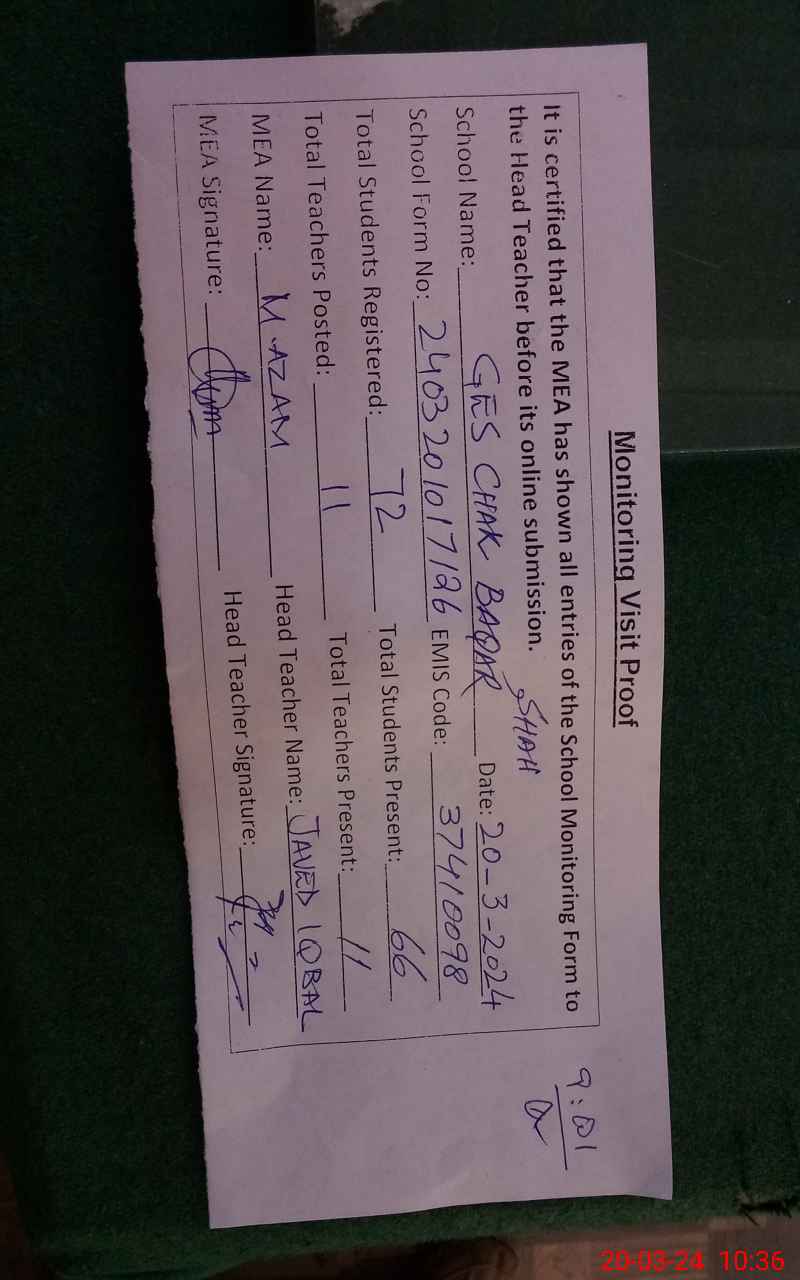 Monitoring Visit Proof
It is certified that the MEA has shown all entries of the School Monitoring Form to
the Head Teacher before its online submission.
School Name: GES CHAK BAQAR SHAH Date: 20-3-2024
School Form No: 2403201017126 EMIS Code: 37410098
Total Students Registered: 72 Total Students Present: 66
Total Teachers Posted: 11 Total Teachers Present: 11
MEA Name: M.AZAM Head Teacher Name: JAVED IQBAL
MEA Signature: Head Teacher Signature:
9:01
20-03-24 10:36